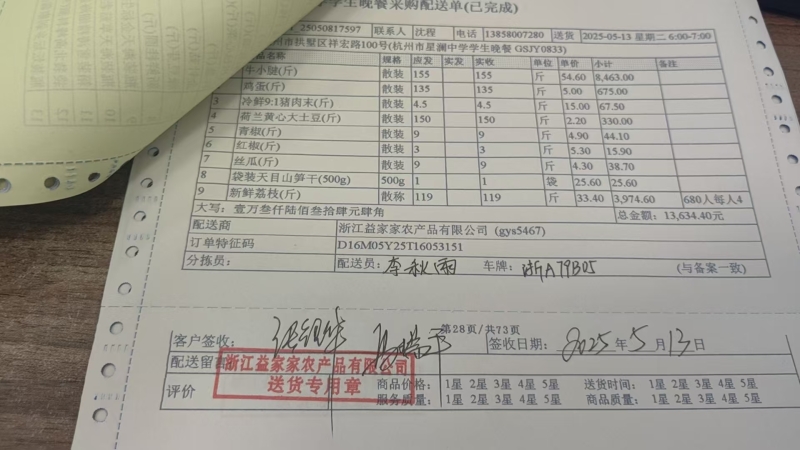 学生晚餐采购配送单(已完成)
25050817597 联系人 沈程 电话 13858007280 送货 2025-05-13 星期二 6:00-7:00
州市拱墅区祥宏路100号(杭州市星澜中学学生晚餐 GSJY0833)
品名称 规格 应发 实发 实收 单位 单价 小计 备注
牛小腿(斤) 散装 155 155 斤 54.60 8,463.00
鸡蛋(斤) 散装 135 135 斤 5.00 675.00
3 冷鲜9:1猪肉末(斤) 散装 4.5 4.5 斤 15.00 67.50
4 荷兰黄心大土豆(斤) 散装 150 150 斤 2.20 330.00
5 青椒(斤) 散装 9 9 斤 4.90 44.10
6 红椒(斤) 散装 3 3 斤 5.30 15.90
7 丝瓜(斤) 散装 9 9 斤 4.30 38.70
8 袋装天目山笋干(500g) 500g 1 1 袋 25.60 25.60
9 新鲜荔枝(斤) 散称 119 119 斤 33.40 3,974.60 680人每人4
大写: 壹万叁仟陆佰叁拾肆元肆角 总金额: 13,634.40元
配送商 浙江益家家农产品有限公司 (gys5467)
订单特征码 D16M05Y25T16053151
分拣员: 配送员: 李秋雨 车牌: 浙A79B05 (与备案一致)
第28页/共73页
客户签收: 签收日期: 2025年5月13日
配送留言
浙江益家家农产品有限公司
送货专用章
评价 商品价格: 1星 2星 3星 4星 5星 送货时间: 1星 2星 3星 4星 5星
服务质量: 1星 2星 3星 4星 5星 商品质量: 1星 2星 3星 4星 5星